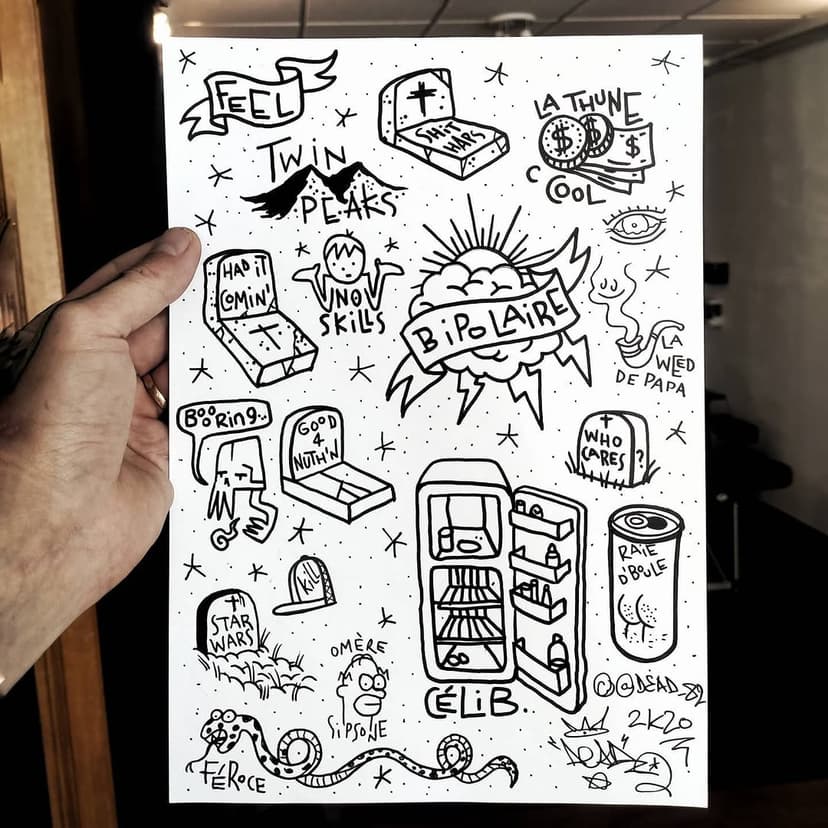 FEEL
SHIT
HAPS
LA THUNE
$ $ $
C COOL
TWIN
PEAKS
HAD iT
COMiN'
NO
SKiLLS
BiPOLAiRE
LA
WEED
DE PAPA
BOORiNG..
GOOD
4
NUTH'N
WHO
CARES?
RAiE
D'BOULE
KiLL
STAR
WARS
OMÈRE
SiPSONE
CÉLiB.
@DEAD_82
2K20
FÉROCE